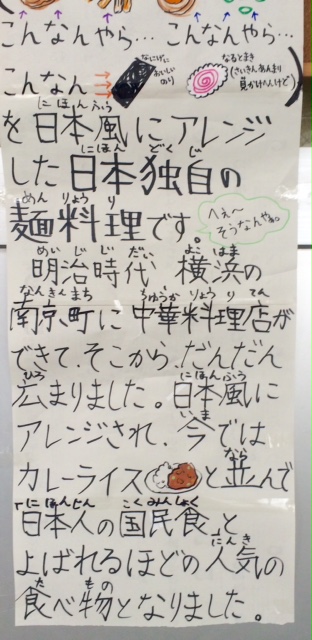 こんなんやら… こんなんやら…
こんなん
なにげに
おいしい
のり
なるとまき
(さいきんあんまり
見かけへんけど)
にほんふう
を日本風にアレンジ
にほん どくじ
した日本独自の
めんりょうり
麺料理です。
へぇ〜
そうなんやね。
めいじじだい よこはま
明治時代 横浜の
なんきんまち ちゅうかりょうりてん
南京町に中華料理店が
できて、そこから、だんだん
ひろ にほんふう
広まりました。日本風に
いま
アレンジされ、今では
なら
カレーライスと並んで
にほんじん こくみんしょく
「日本人の国民食」と
にんき
よばれるほどの人気の
た もの
食べ物となりました。